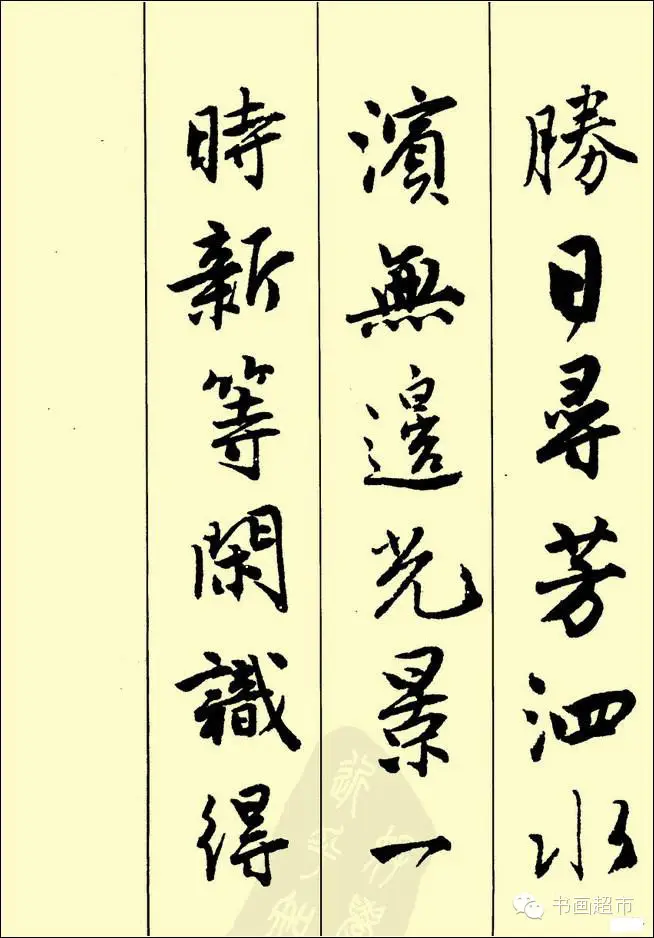 勝日尋芳泗水
濱無邊光景一
時新等閑識得
书画超市